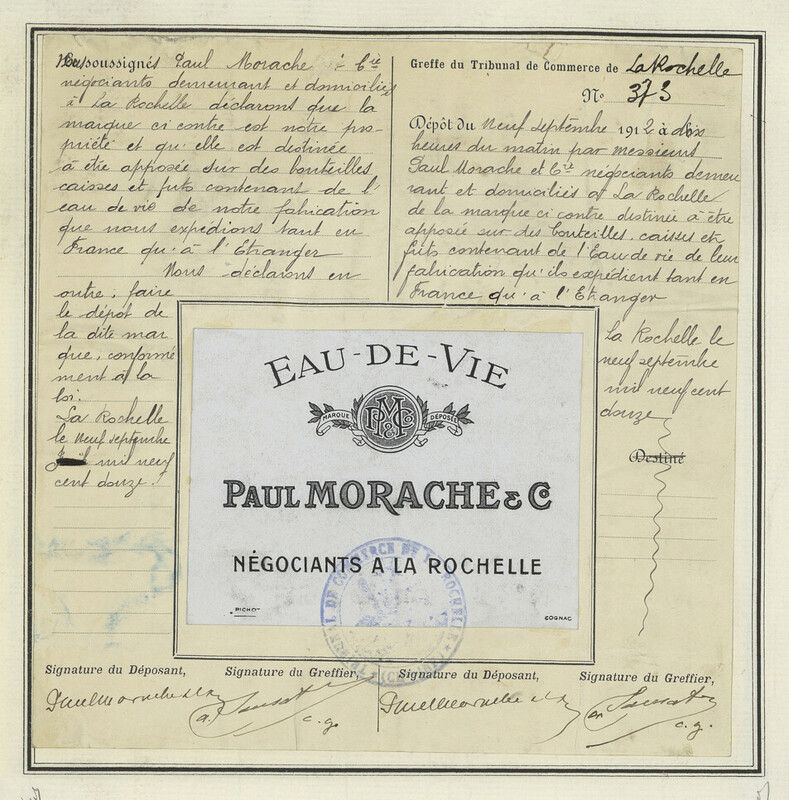 Nous soussignés Paul Morache & Cie
négociants demeurant et domiciliés
à La Rochelle déclarons que la
marque ci contre est notre pro-
priété et qu'elle est destinée
à être apposée sur des bouteilles,
caisses et futs contenant de l'
eau de vie de notre fabrication
que nous expédions tant en
France qu'à l'Etranger
Nous déclarons en
outre, faire
le dépôt de
la dite mar
que, conformé
ment à la
loi.
La Rochelle
le Neuf septembre
mil neuf
cent douze.
Greffe du Tribunal de Commerce de La Rochelle
No 373
Dépôt du Neuf Septembre 1912 à dix
heures du matin par Messieurs
Paul Morache et Cie négociants demeu
rant et domiciliés à La Rochelle
de la marque ci contre distinée à être
apposée sur des bouteilles, caisses et
futs contenant de l'Eau de vie de leur
fabrication qu'ils expédient tant en
France qu'à l'Etranger
La Rochelle le
neuf septembre
mil neuf cent
douze
Destiné
EAU-DE-VIE
MARQUE DÉPOSÉE
PM&Co
PAUL MORACHE & Co
NÉGOCIANTS A LA ROCHELLE
COGNAC
TRIBUNAL DE COMMERCE DE LA ROCHELLE
Signature du Déposant, Signature du Greffier, Signature du Déposant, Signature du Greffier,
Paul Morache & Co
c. g.
Paul Morache & Co
c. g.